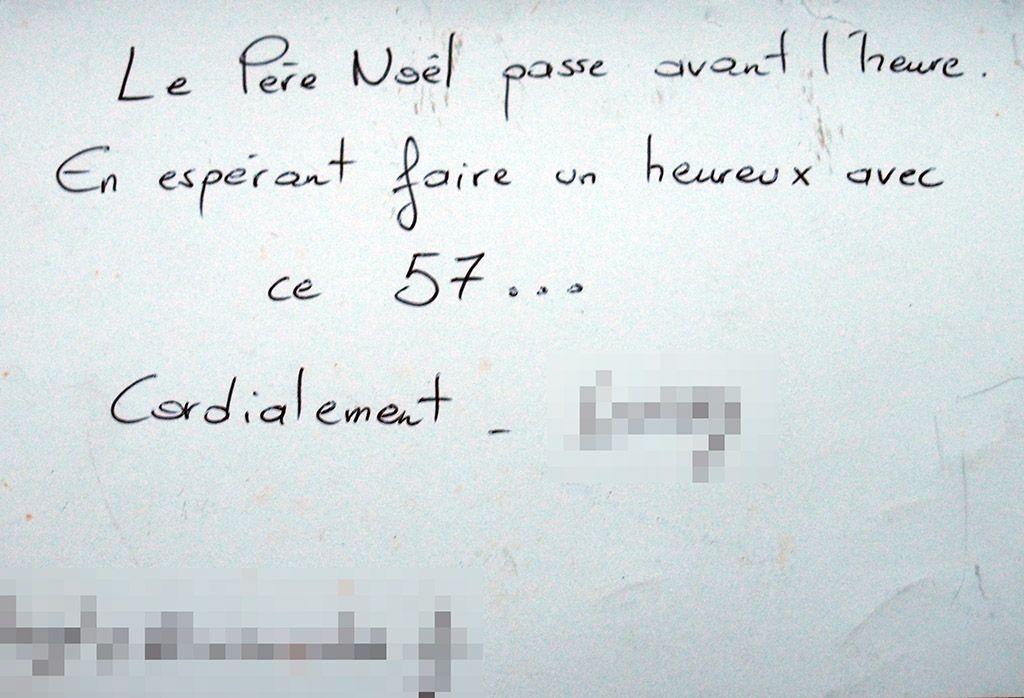 Le Père Noël passe avant l'heure.
En espérant faire un heureux avec
ce 57...
Cordialement -